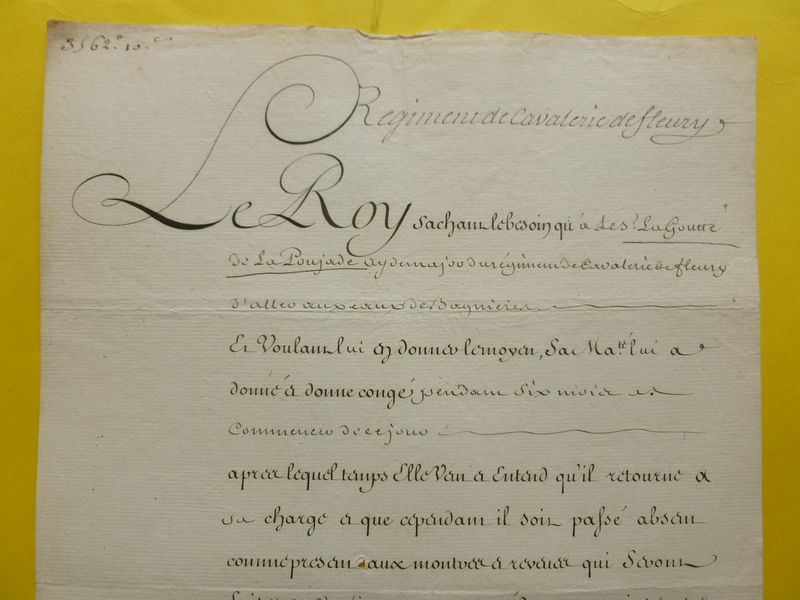 3562# 10.
Regiment de Cavalerie de fleury
Le Roy sachant le besoin qu'a le Sr. La Goutte
de La Poujade aydemajor du régiment de Cavalerie de fleury
d'aller aux eaux de Bagnieres
Et Voulant lui en donner le moyen, Sa Matté. lui a
donné et donne congé pendant six mois
Commencer de ce jour
aprés lequel temps Elle Veut et Entend qu'il retourne a
sa charge et que cependant il soit passé absent
comme present aux montres et reveües qui Seront